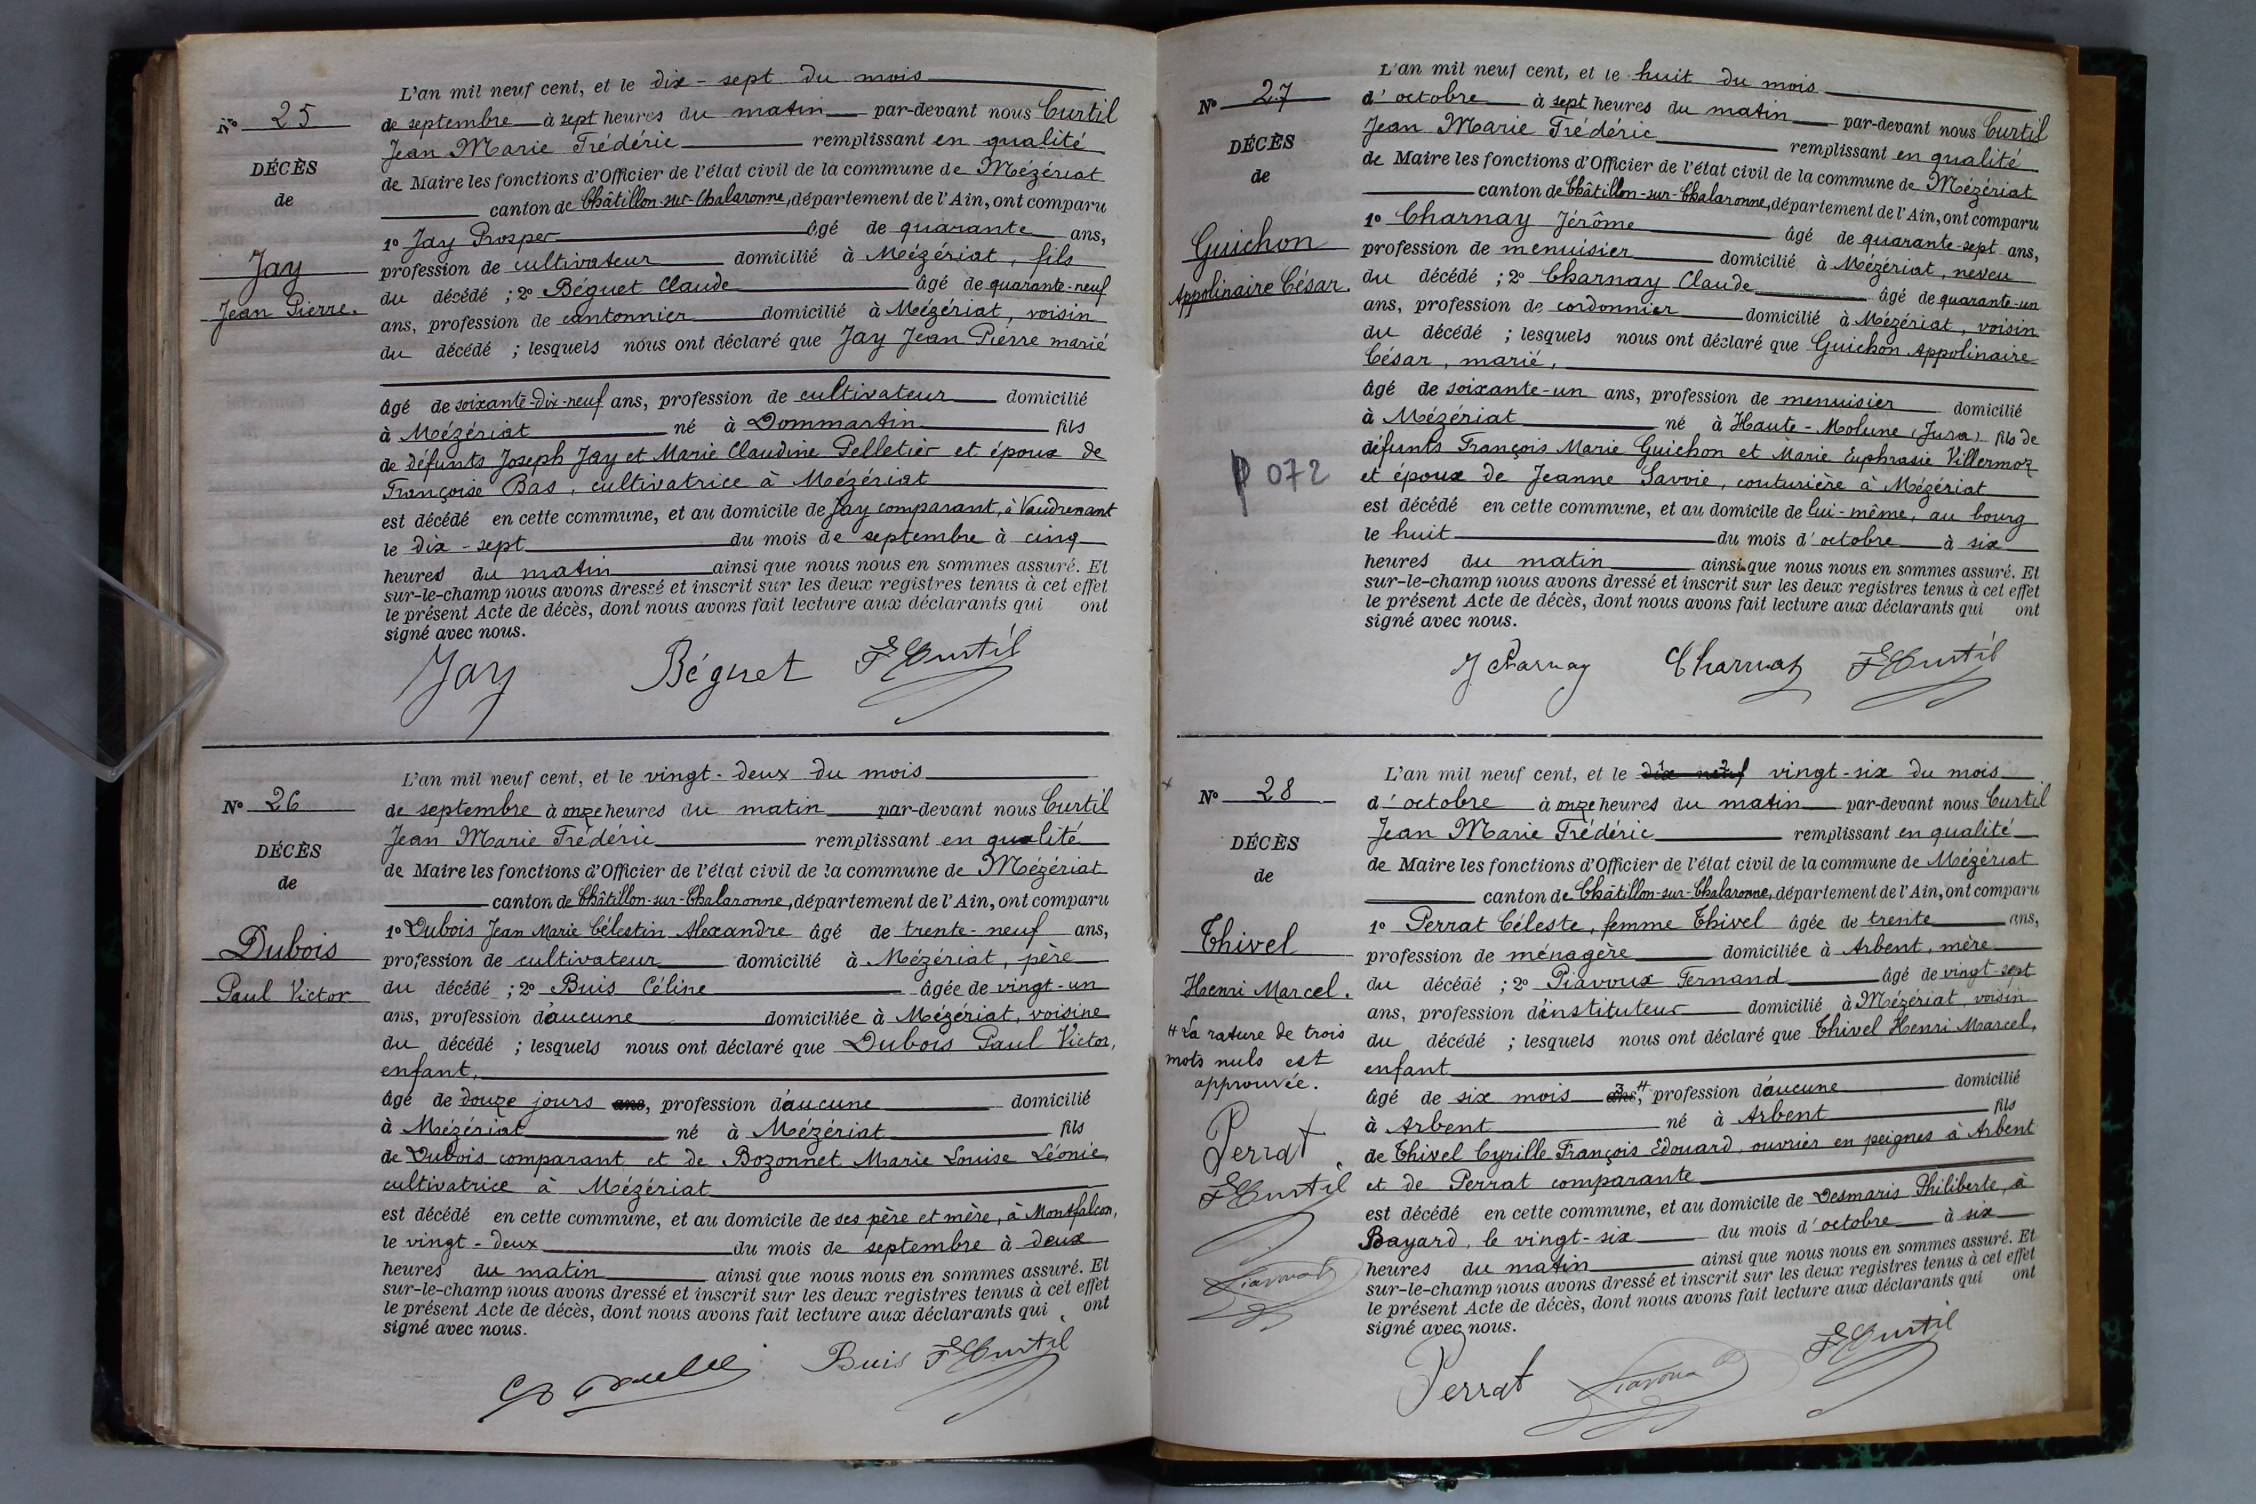 N° 25
DÉCÈS
de
Jay
Jean Pierre.
L'an mil neuf cent, et le dix-sept du mois
de septembre à sept heures du matin par-devant nous Curtil
Jean Marie Frédéric remplissant en qualité
de Maire les fonctions d'Officier de l'état civil de la commune de Mézériat
canton de Châtillon-sur-Chalaronne, département de l'Ain, ont comparu
1° Jay Prosper âgé de quarante ans,
profession de cultivateur domicilié à Mézériat, fils
du décédé ; 2° Béguet Claude âgé de quarante-neuf
ans, profession de cantonnier domicilié à Mézériat, voisin
du décédé ; lesquels nous ont déclaré que Jay Jean Pierre marié
âgé de soixante-dix-neuf ans, profession de cultivateur domicilié
à Mézériat né à Dommartin fils
de défunts Joseph Jay et Marie Claudine Pelletier et époux de
Françoise Bas, cultivatrice à Mézériat
est décédé en cette commune, et au domicile de Jay comparant, à Vaudrenant
le dix-sept du mois de septembre à cinq
heures du matin ainsi que nous nous en sommes assuré. Et
sur-le-champ nous avons dressé et inscrit sur les deux registres tenus à cet effet
le présent Acte de décès, dont nous avons fait lecture aux déclarants qui ont
signé avec nous.
Jay Béguet F Curtil
N° 26
DÉCÈS
de
Dubois
Paul Victor
L'an mil neuf cent, et le vingt-deux du mois
de septembre à onze heures du matin par-devant nous Curtil
Jean Marie Frédéric remplissant en qualité
de Maire les fonctions d'Officier de l'état civil de la commune de Mézériat
canton de Châtillon-sur-Chalaronne, département de l'Ain, ont comparu
1° Dubois Jean Marie Célestin Alexandre âgé de trente-neuf ans,
profession de cultivateur domicilié à Mézériat, père
du décédé ; 2° Buis Céline âgée de vingt-un
ans, profession d'aucune domiciliée à Mézériat, voisine
du décédé ; lesquels nous ont déclaré que Dubois Paul Victor,
enfant,
âgé de douze jours ans, profession d'aucune domicilié
à Mézériat né à Mézériat fils
de Dubois comparant et de Bozonnet Marie Louise Léonie,
cultivatrice à Mézériat
est décédé en cette commune, et au domicile de ses père et mère, à Montfalcon,
le vingt-deux du mois de septembre à deux
heures du matin ainsi que nous nous en sommes assuré. Et
sur-le-champ nous avons dressé et inscrit sur les deux registres tenus à cet effet
le présent Acte de décès, dont nous avons fait lecture aux déclarants qui ont
signé avec nous.
Buis F Curtil
N° 27
DÉCÈS
de
Guichon
Appolinaire César.
P 072
L'an mil neuf cent, et le huit du mois
d'octobre à sept heures du matin par-devant nous Curtil
Jean Marie Frédéric remplissant en qualité
de Maire les fonctions d'Officier de l'état civil de la commune de Mézériat
canton de Châtillon-sur-Chalaronne, département de l'Ain, ont comparu
1° Charnay Jérôme âgé de quarante-sept ans,
profession de menuisier domicilié à Mézériat, neveu
du décédé ; 2° Charnay Claude âgé de quarante-un
ans, profession de cordonnier domicilié à Mézériat, voisin
du décédé ; lesquels nous ont déclaré que Guichon Appolinaire
César, marié,
âgé de soixante-un ans, profession de menuisier domicilié
à Mézériat né à Haute-Molune (Jura) fils de
défunts François Marie Guichon et Marie Euphrasie Villermoz
et époux de Jeanne Savoie, couturière à Mézériat
est décédé en cette commune, et au domicile de lui-même, au bourg
le huit du mois d'octobre à six
heures du matin ainsi que nous nous en sommes assuré. Et
sur-le-champ nous avons dressé et inscrit sur les deux registres tenus à cet effet
le présent Acte de décès, dont nous avons fait lecture aux déclarants qui ont
signé avec nous.
J Charnay Charnay F Curtil
N° 28
DÉCÈS
de
Thivel
Henri Marcel.
# La rature de trois
mots nuls est
approuvée.
Perrat
F Curtil
L'an mil neuf cent, et le dix neuf vingt-six du mois
d'octobre à onze heures du matin par-devant nous Curtil
Jean Marie Frédéric remplissant en qualité
de Maire les fonctions d'Officier de l'état civil de la commune de Mézériat
canton de Châtillon-sur-Chalaronne, département de l'Ain, ont comparu
1° Perrat Céleste, femme Thivel âgée de trente ans,
profession de ménagère domiciliée à Arbent, mère
du décédé ; 2° Piavoux Fernand âgé de vingt-sept
ans, profession d'instituteur domicilié à Mézériat, voisin
du décédé ; lesquels nous ont déclaré que Thivel Henri Marcel,
enfant
âgé de six mois ans, # profession d'aucune domicilié
à Arbent né à Arbent fils
de Thivel Cyrille François Edouard, ouvrier en peignes à Arbent
et de Perrat comparante
est décédé en cette commune, et au domicile de Desmaris Philiberte, à
Bayard, le vingt-six du mois d'octobre à six
heures du matin ainsi que nous nous en sommes assuré. Et
sur-le-champ nous avons dressé et inscrit sur les deux registres tenus à cet effet
le présent Acte de décès, dont nous avons fait lecture aux déclarants qui ont
signé avec nous.
Perrat Piavoux F Curtil